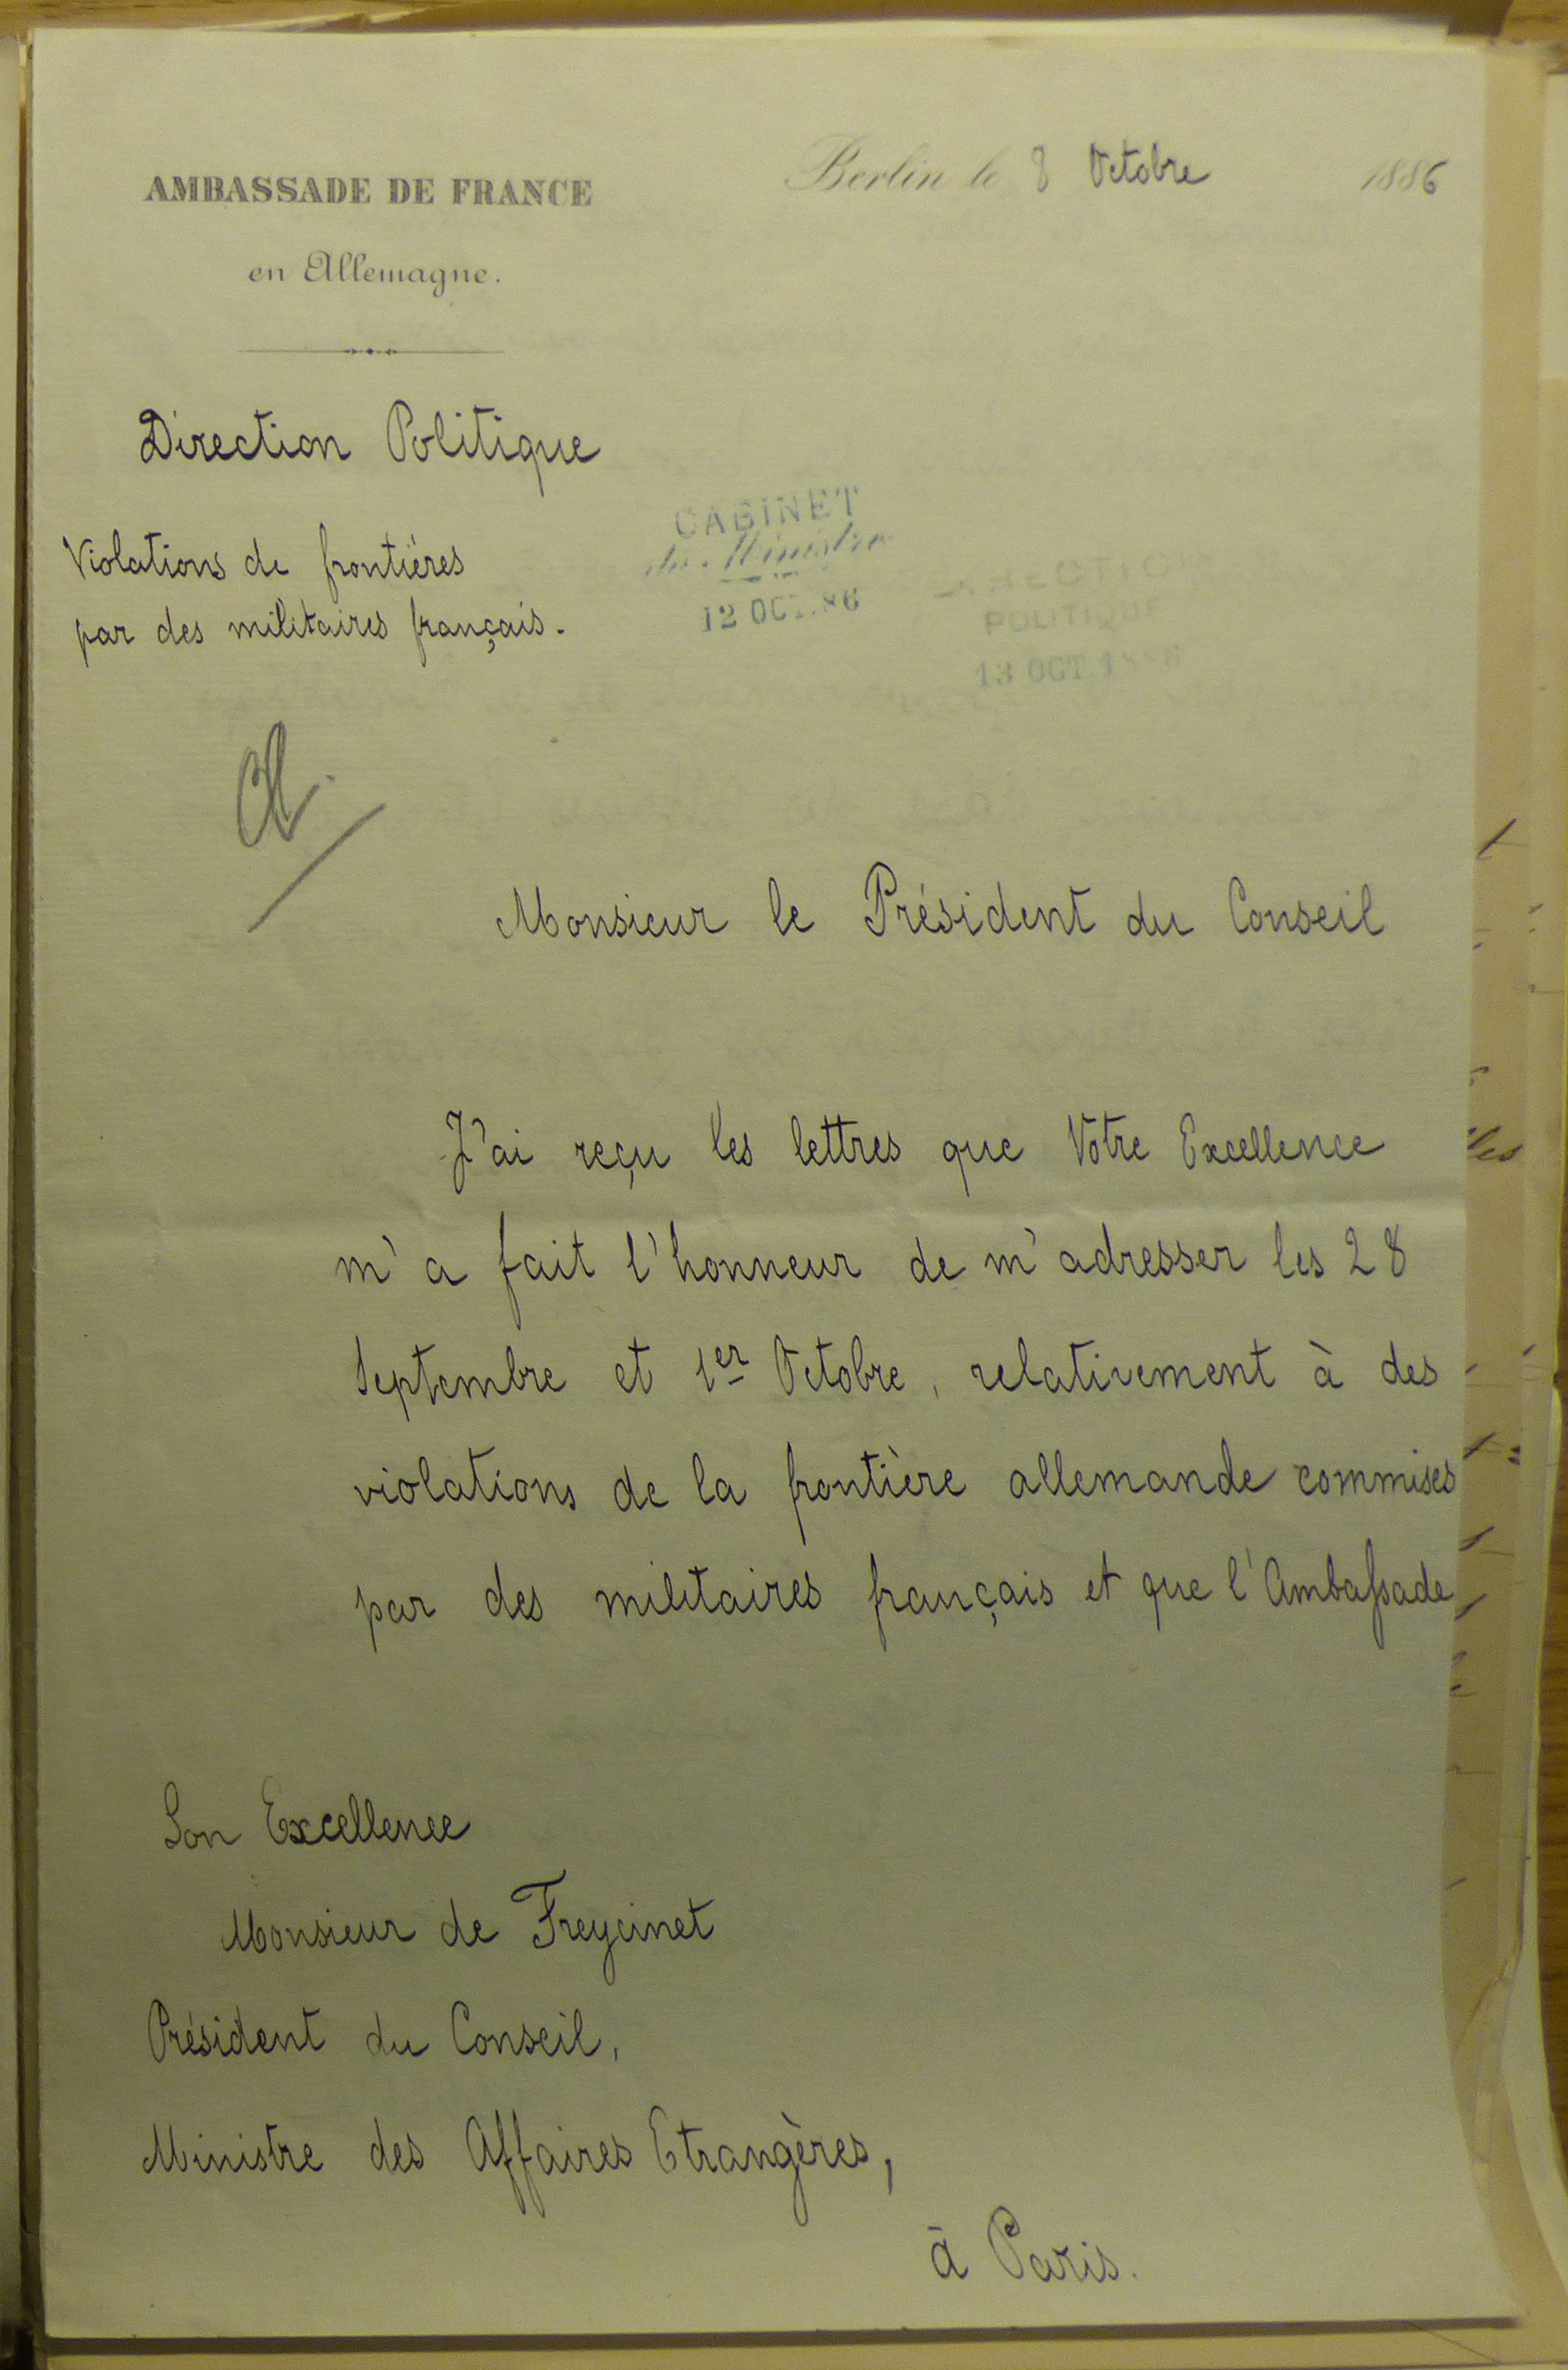 AMBASSADE DE FRANCE
en Allemagne.
Berlin le 8 Octobre 1886
Direction Politique
Violations de frontières
par des militaires français.
CABINET
du Ministre
12 OCT. 86
DIRECTION
POLITIQUE
13 OCT 1886
Monsieur le Président du Conseil
J'ai reçu les lettres que Votre Excellence
m'a fait l'honneur de m'adresser les 28
Septembre et 1er Octobre, relativement à des
violations de la frontière allemande commises
par des militaires français et que l'Ambaſsade
Son Excellence
Monsieur de Freycinet
Président du Conseil,
Ministre des Affaires Etrangères,
à Paris.